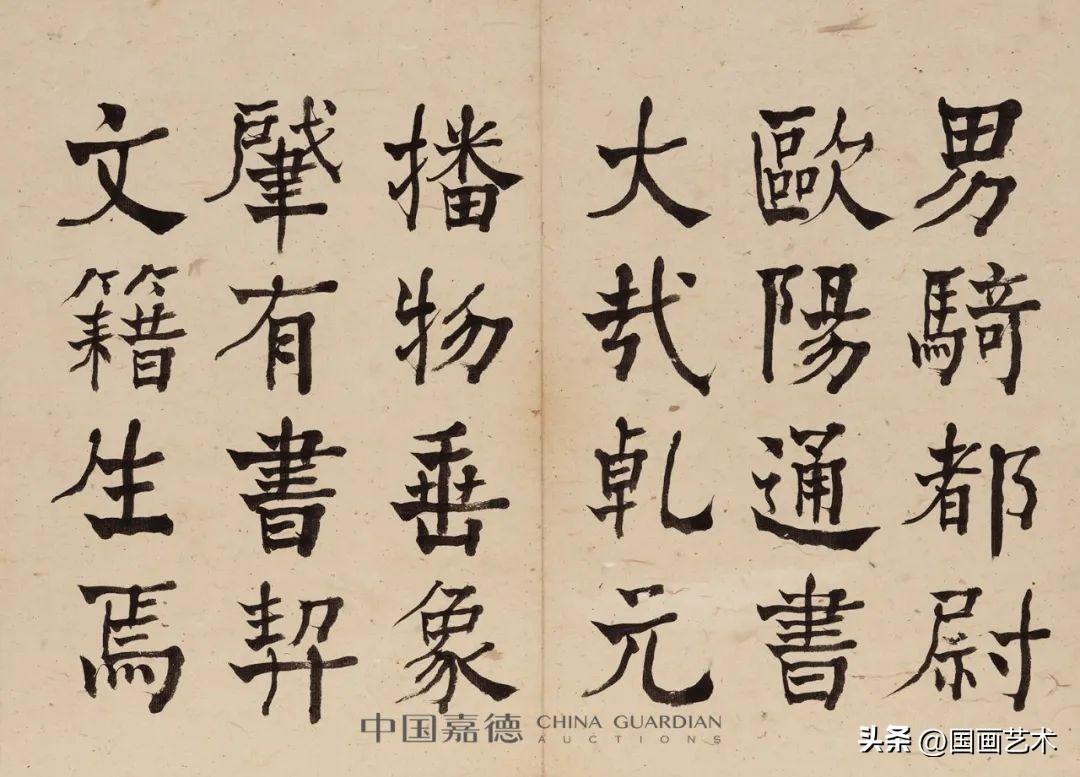 男騎都尉
歐陽通書
大哉乾元
播物垂象
肈有書契
文籍生焉
中国嘉德 CHINA GUARDIAN
AUCTIONS
头条 @国画艺术